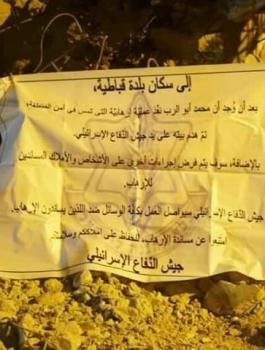 إلى سكان بلدة قباطية،
بعد أن وُجد أن محمد أبو الرب نفذ عملية إرهابية التي تمس في أمن المنطقة،
تم هدم بيته على يد جيش الدفاع الإسرائيلي.
بالإضافة، سوف يتم فرض إجراءات أخرى على الأشخاص والأملاك المساندين
للإرهاب.
جيش الدفاع الإسرائيلي سيواصل العمل بكافة الوسائل ضد اللذين يساندون الإرهاب.
امتنعوا عن مساندة الإرهاب، للحفاظ على أملاككم وسلامتكم.
جيش الدفاع الإسرائيلي